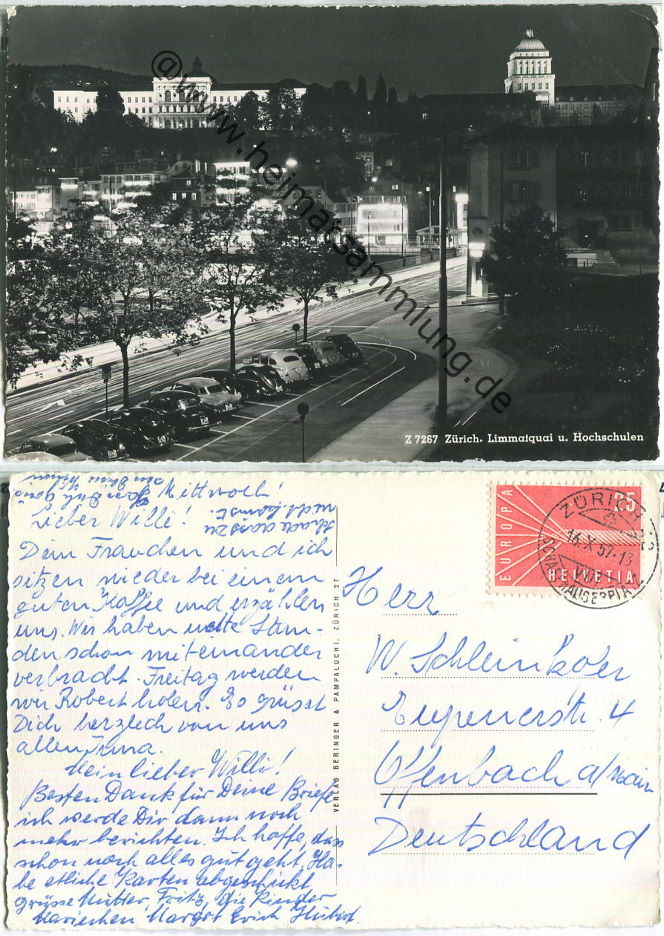 @www.heimatsammlung.de
Z 7267 Zürich. Limmatquai u. Hochschulen
Mittwoch!
Lieber Willi!
schade dass Du
nicht kannst
Dein Frauchen und ich
sitzen wieder bei einem
guten Kaffee und erzählen
uns. Wir haben nette Stun-
den schon miteinander
verbracht. Freitag werden
wir Robert holen. Es grüsst
Dich herzlich von uns
allen
Mein lieber Willi!
Besten Dank für Deine Briefe
ich werde Dir dann noch
mehr berichten. Ich hoffe, dass
schon noch alles gut geht. Ha-
be etliche Karten abgeschickt
grüsse Mutter, Fritz, die Kinder
Margot Erich
VERLAG BERINGER & PAMPALUCHI, ZÜRICH 27
EUROPA
25
HELVETIA
ZÜRICH
16.X.57
Herr
W. Schleinkofer
4
Offenbach a/Main
Deutschland